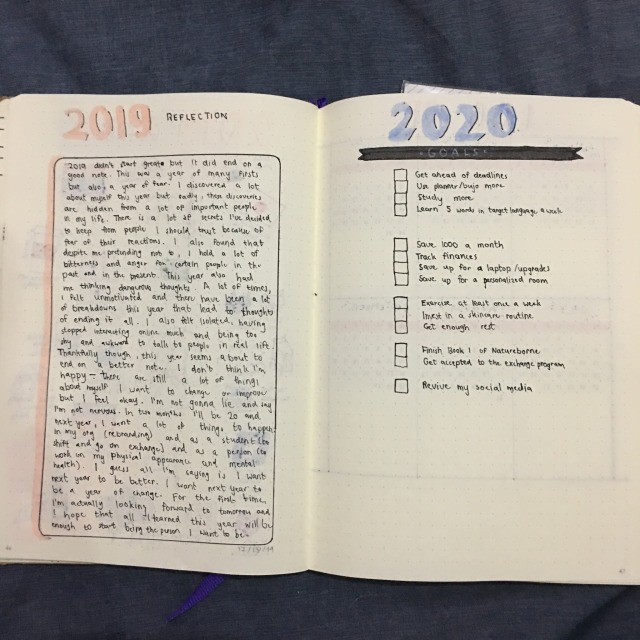 2019 REFLECTION
2019 didn't start great but it did end on a
good note. This was a year of many firsts
but also a year of fear. I discovered a lot
about myself this year but sadly, these discoveries
are hidden from a lot of important people
in my life. There is a lot of secrets I've decided
to keep from people I should trust because of
fear of their reactions. I also found that
despite me pretending not to, I hold a lot of
bitterness and anger for certain people in the
past and in the present. This year also had
me thinking dangerous thoughts. A lot of times,
I felt unmotivated and there have been a lot
of breakdowns this year that lead to thoughts
of ending it all. I also felt isolated, having
stopped interacting online much and being too
shy and awkward to talk to people in real life.
Thankfully though, this year seems about to
end on a better note. I don't think I'm
happy - there are still a lot of things
about myself I want to change or improve
but I feel okay. I'm not gonna lie and say
I'm not nervous. In two months I'll be 20 and
next year, I want a lot of things to happen:
in my org (rebranding) and as a student (to
shift and go on exchange) and as a person (to
work on my physical appearance and mental
health). I guess all I'm saying is I want
next year to be better. I want next year to
be a year of change. For the first time,
I'm actually looking forward to tomorrow and
I hope that all I learned this year will be
enough to start being the person I want to be.
2020
GOALS
Get ahead of deadlines
Use planner/bujo more
Study more
Learn 5 words in target language a week
Save 1000 a month
Track finances
Save up for a laptop/upgrades
Save up for a personalized room
Exercise at least once a week
Invest in a skincare routine
Get enough rest
Finish Book 1 of Natureborne
Get accepted to the exchange program
Revive my social media